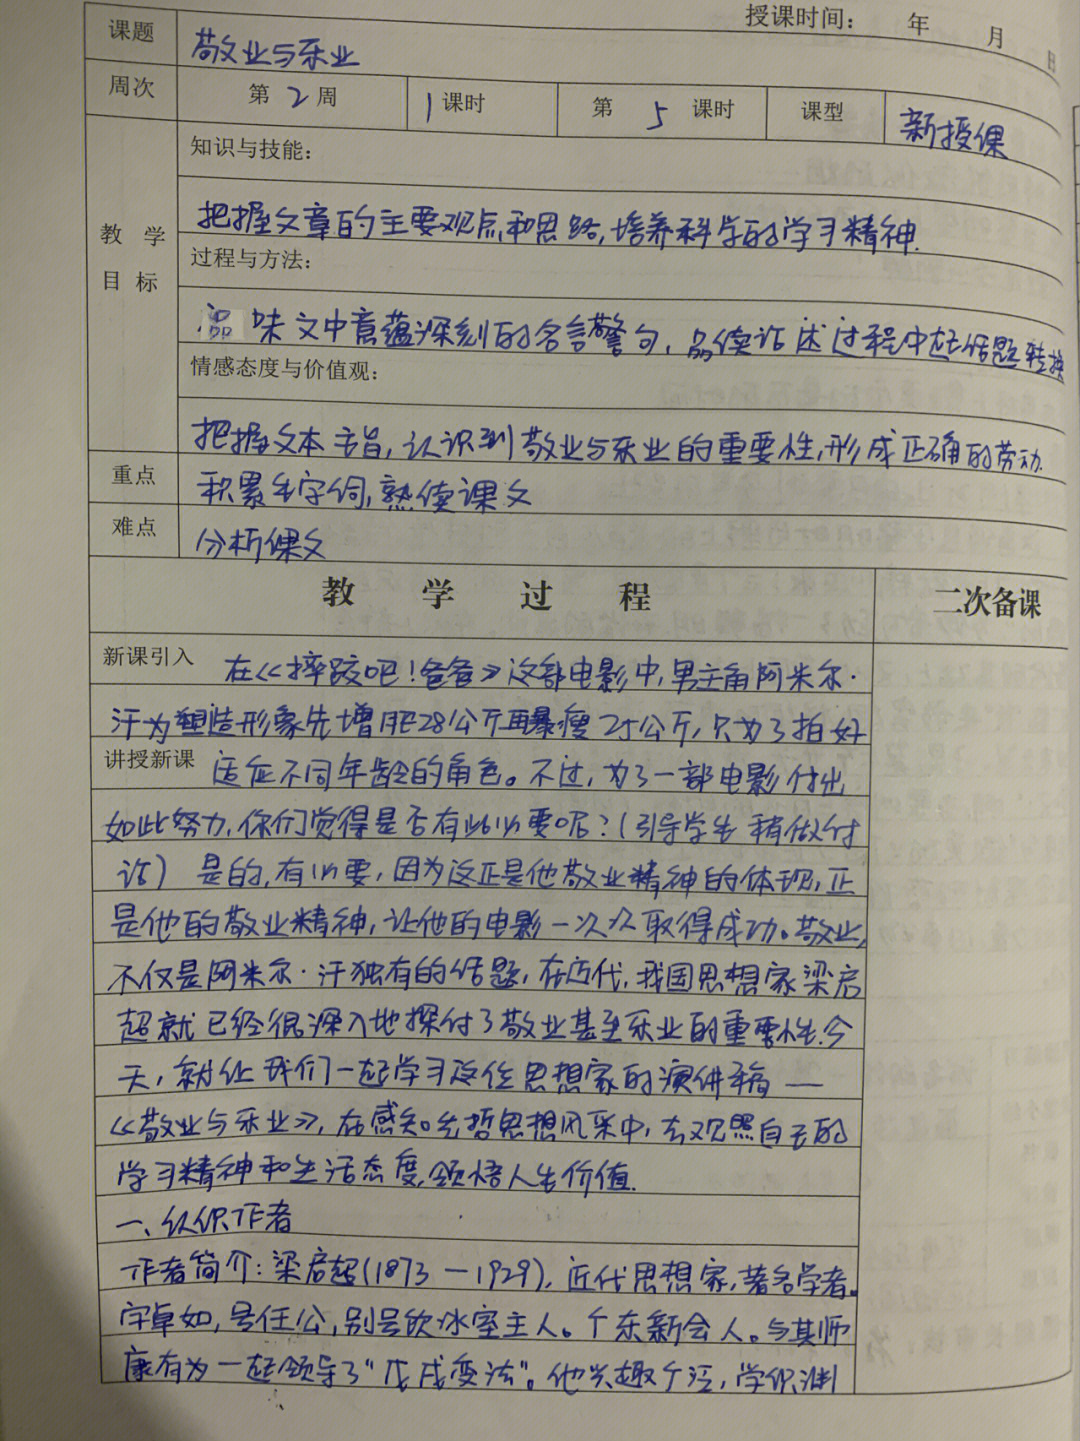 授课时间： 年 月 日
课题 敬业与乐业
周次 第2周 1课时 第5课时 课型 新授课
教学目标
知识与技能：
把握文章的主要观点和思路，培养科学的学习精神．
过程与方法：
品味文中意蕴深刻的名言警句，品读论述过程中在话题转换
情感态度与价值观：
把握文本主旨，认识到敬业与乐业的重要性，形成正确的劳动．
重点 积累生字词，熟读课文
难点 分析课文
教学过程 二次备课
新课引入 在《摔跤吧！爸爸》这部电影中，男主角阿米尔·
汗为塑造形象先增肥28公斤再暴瘦25公斤，只为了拍好
讲授新课 适应不同年龄的角色。不过，为了一部电影付出
如此努力，你们觉得是否有此必要呢？（引导学生稍做讨
论） 是的，有必要，因为这正是他敬业精神的体现，正
是他的敬业精神，让他的电影一次次取得成功。敬业，
不仅是阿米尔·汗独有的话题，在近代，我国思想家梁启
超就已经很深入地探讨了敬业甚至乐业的重要性．今
天，就让我们一起学习这位思想家的演讲稿——
《敬业与乐业》，在感知先哲思想风采中，去观照自己的
学习精神和生活态度，领悟人生价值．
一、认识作者
作者简介：梁启超（1873—1929），近代思想家，著名学者。
字卓如，号任公，别号饮冰室主人。广东新会人。与其师
康有为一起领导了“戊戌变法”。他兴趣广泛，学识渊